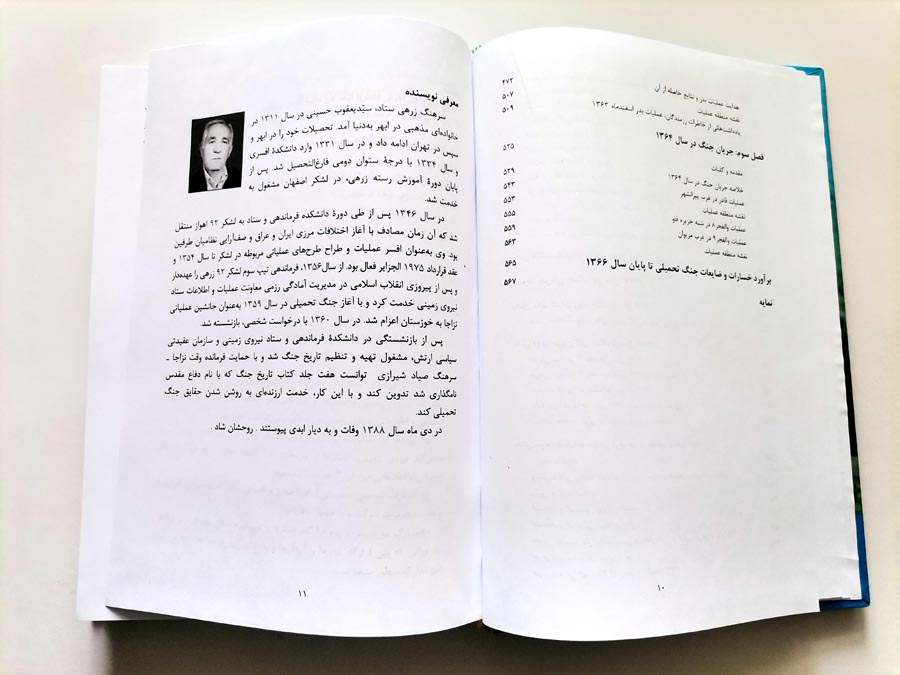 هدایت عملیات بدر و نتایج حاصله از آن ۴۷۲
نقشه منطقه عملیات ۵۰۷
یادداشت‌هائی از خاطرات رزمندگان، عملیات بدر اسفندماه ۱۳۶۳ ۵۰۹
فصل سوم: جریان جنگ در سال ۱۳۶۴
مقدمه و کلیات ۵۲۵
خلاصه جریان جنگ در سال ۱۳۶۴ ۵۲۹
عملیات قادر در غرب پیرانشهر ۵۴۳
نقشه منطقه عملیات ۵۵۳
عملیات والفجر۸ در شبه جزیره فاو ۵۵۵
عملیات والفجر۹ در غرب مریوان ۵۵۹
نقشه منطقه عملیات ۵۶۳
برآورد خسارات و ضایعات جنگ تحمیلی تا پایان سال ۱۳۶۶ ۵۶۵
نمایه ۵۶۷
۱۰
معرفی نویسنده
سرهنگ زرهی ستاد، سیّدیعقوب حسینی در سال ۱۳۱۱ در
خانواده‌ای مذهبی در ابهر به‌دنیا آمد. تحصیلات خود را در ابهر و
سپس در تهران ادامه داد و در سال ۱۳۳۱ وارد دانشکدهٔ افسری
و سال ۱۳۳۴ با درجهٔ ستوان دومی فارغ‌التحصیل شد. پس از
پایان دورهٔ آموزش رسته زرهی، در لشکر اصفهان مشغول به
خدمت شد.
در سال ۱۳۴۶ پس از طی دورهٔ دانشکده فرماندهی و ستاد به لشکر ۹۲ اهواز منتقل
شد که آن زمان مصادف با آغاز اختلافات مرزی ایران و عراق و صف‌آرایی نظامیان طرفین
بود. وی به‌عنوان افسر عملیات و طراح طرح‌های عملیاتی مربوطه در لشکر تا سال ۱۳۵۴ و
عقد قرارداد ۱۹۷۵ الجزایر فعال بود. از سال۱۳۵۶، فرماندهی تیپ سوم لشکر ۹۲ زرهی را عهده‌دار
و پس از پیروزی انقلاب اسلامی در مدیریت آمادگی رزمی معاونت عملیات و اطلاعات ستاد
نیروی زمینی خدمت کرد و با آغاز جنگ تحمیلی در سال ۱۳۵۹ به‌عنوان جانشین عملیاتی
نزاجا به خوزستان اعزام شد. در سال ۱۳۶۰ با درخواست شخصی، بازنشسته شد.
پس از بازنشستگی در دانشکدهٔ فرماندهی و ستاد نیروی زمینی و سازمان عقیدتی
سیاسی ارتش، مشغول تهیه و تنظیم تاریخ جنگ شد و با حمایت فرمانده وقت نزاجا ـ
سرهنگ صیاد شیرازی توانست هفت جلد کتاب تاریخ جنگ که با نام دفاع مقدس
نامگذاری شد تدوین کند و با این کار، خدمت ارزنده‌ای به روشن شدن حقایق جنگ
تحمیلی کند.
در دی ماه سال ۱۳۸۸ وفات و به دیار ابدی پیوستند . روحشان شاد .
۱۱